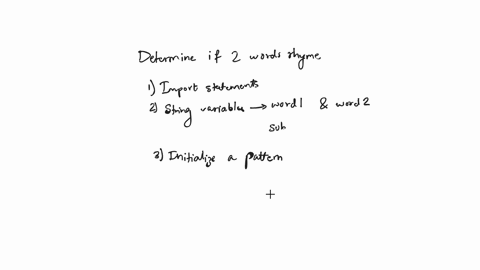 Determine if 2 words rhyme
1) Import statements
2) String variables → word1 & word2
sub
3) Initialize a pattern